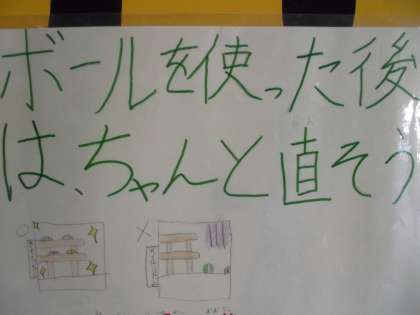 ボールを使った後
は、ちゃんと直そう